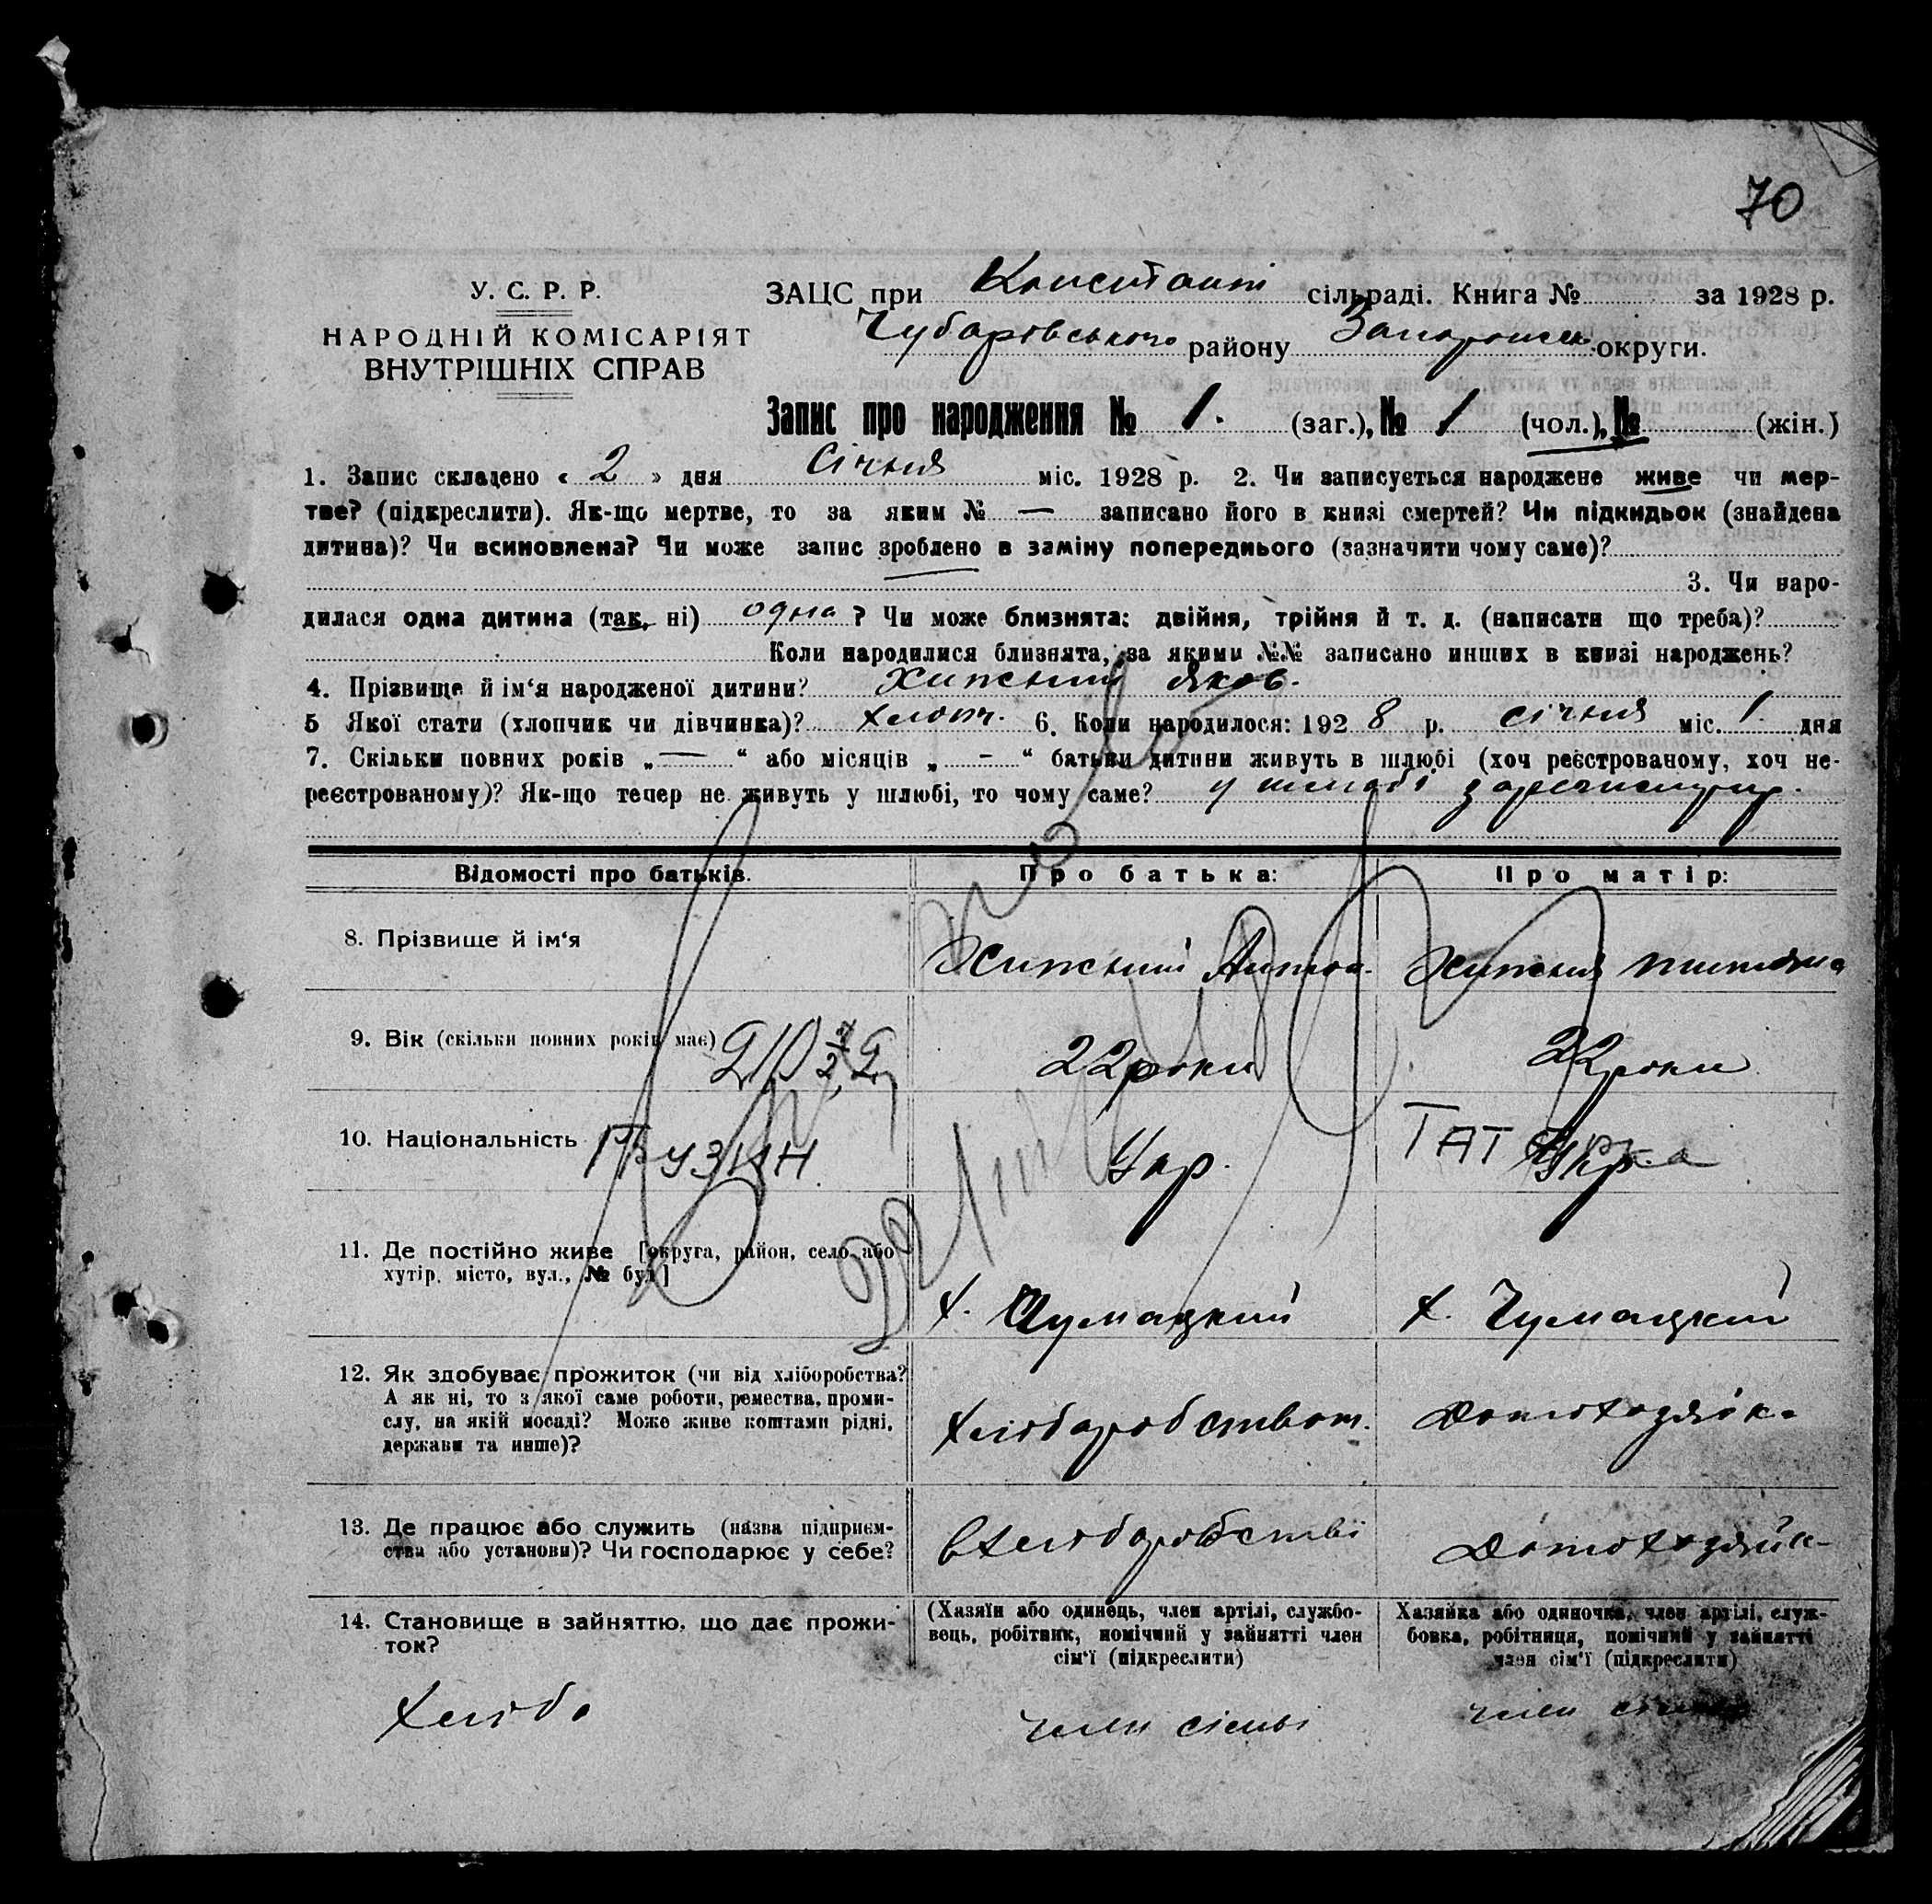 70
У. С. Р. Р.
НАРОДНІЙ КОМІСАРІЯТ
ВНУТРІШНІХ СПРАВ
ЗАЦС при сільраді. Книга № за 1928 р.
Чубарівського району округи.
Запис про народження № 1. (заг.), № 1 (чол.), № (жін.)
1. Запис складено « 2 » дня Січня міс. 1928 р. 2. Чи записується народжене живе чи мер-
тве? (підкреслити). Як-що мертве, то за яким № — записано його в книзі смертей? Чи підкидьок (знайдена
дитина)? Чи всиновлена? Чи може запис зроблено в заміну попереднього (зазначити чому саме)?
3. Чи наро-
дилася одна дитина (так, ні) одна ? Чи може близнята: двійня, трійня й т. д. (написати що треба)?
Коли народилися близнята, за якими №№ записано инших в книзі народжень?
4. Прізвище й ім‘я народженої дитини? Яков.
5 Якої стати (хлопчик чи дівчинка)? хлопч. 6. Коли народилося: 192 8 р. січня міс. 1. дня
7. Скільки повних років „ — “ або місяців „ - “ батьки дитини живуть в шлюбі (хоч реєстрованому, хоч не-
реєстрованому)? Як-що тепер не живуть у шлюбі, то чому саме? у шлюбі
Відомості про батьків. Про батька: Про матір:
8. Прізвище й ім‘я
9. Вік (скільки повних років має) 22 роки 22 роки
10. Національність ГРУЗИН Укр. ТАТ Укр.
11. Де постійно живе [округа, район, село або
хутір, місто, вул., № буд]
х. Чумацкий х. Чумацкий
12. Як здобуває прожиток (чи від хліборобства?
А як ні, то з якої саме роботи, ремества, проми-
слу, на якій посаді? Може живе коштами рідні,
держави та инше)?
хліборобством.
13. Де працює або служить (назва підприєм-
ства або установи)? Чи господарює у себе?
в хліборобстві
14. Становище в зайняттю, що дає прожи-
ток?
(Хазяїн або одинець, член артілі, службо-
вець, робітник, помічний у зайнятті член
сім‘ї (підкреслити)
Хазяйка або одиночка, член артілі, служ-
бовка, робітниця, помічний у зайнятті
член сім‘ї (підкреслити)
хлібо член сімьі член